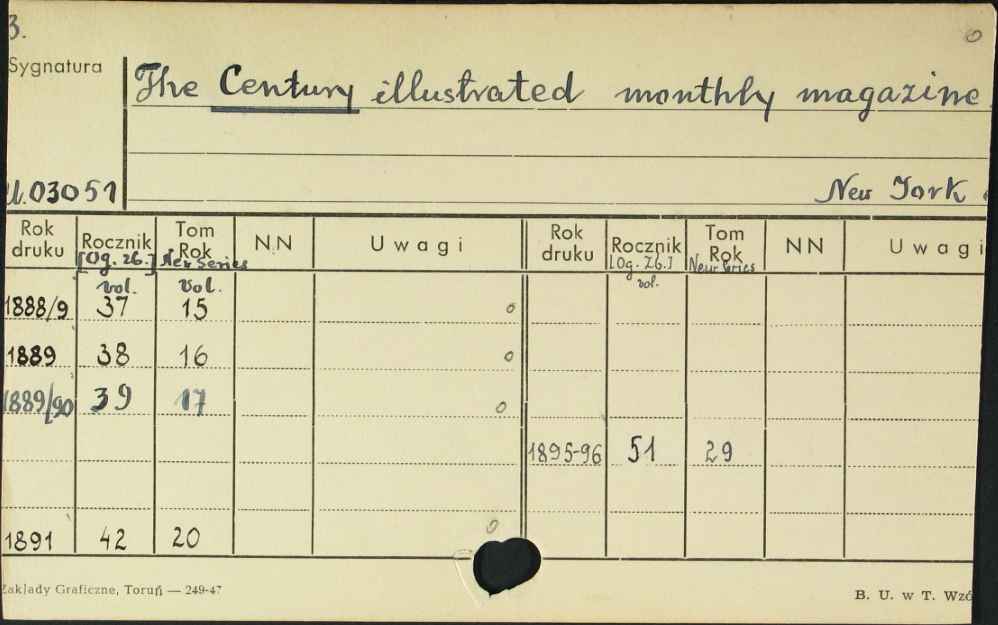 3.
Sygnatura The Century illustrated monthly magazine
03051 New York
Rok druku Rocznik [Og. zb.] vol. Tom Rok New Series vol. NN Uwagi Rok druku Rocznik [Og. Zb.] vol. Tom Rok New Series NN Uwagi
1888/9 37 15 o
1889 38 16 o
1889/90 39 17 o
1895-96 51 29
1891 42 20 o
Zakłady Graficzne, Toruń — 249-47 B. U. w T. Wzó